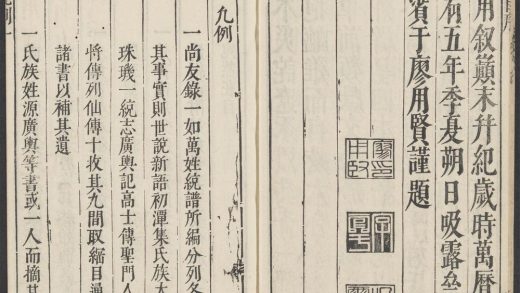 用叙顛末并紀歲時萬曆
有五年季夏朔日吸露
賓于廖用賢謹題
廖印用賢
凡例
一尚友錄一如萬姓統譜所編分列各
其事實則世說新語初潭集氏族大
珠璣一統志廣輿記高士傳聖門人
將傳列仙傳十收其九間取縮目通
諸書以補其遺
一氏族姓源廣輿等書或一人而摘其